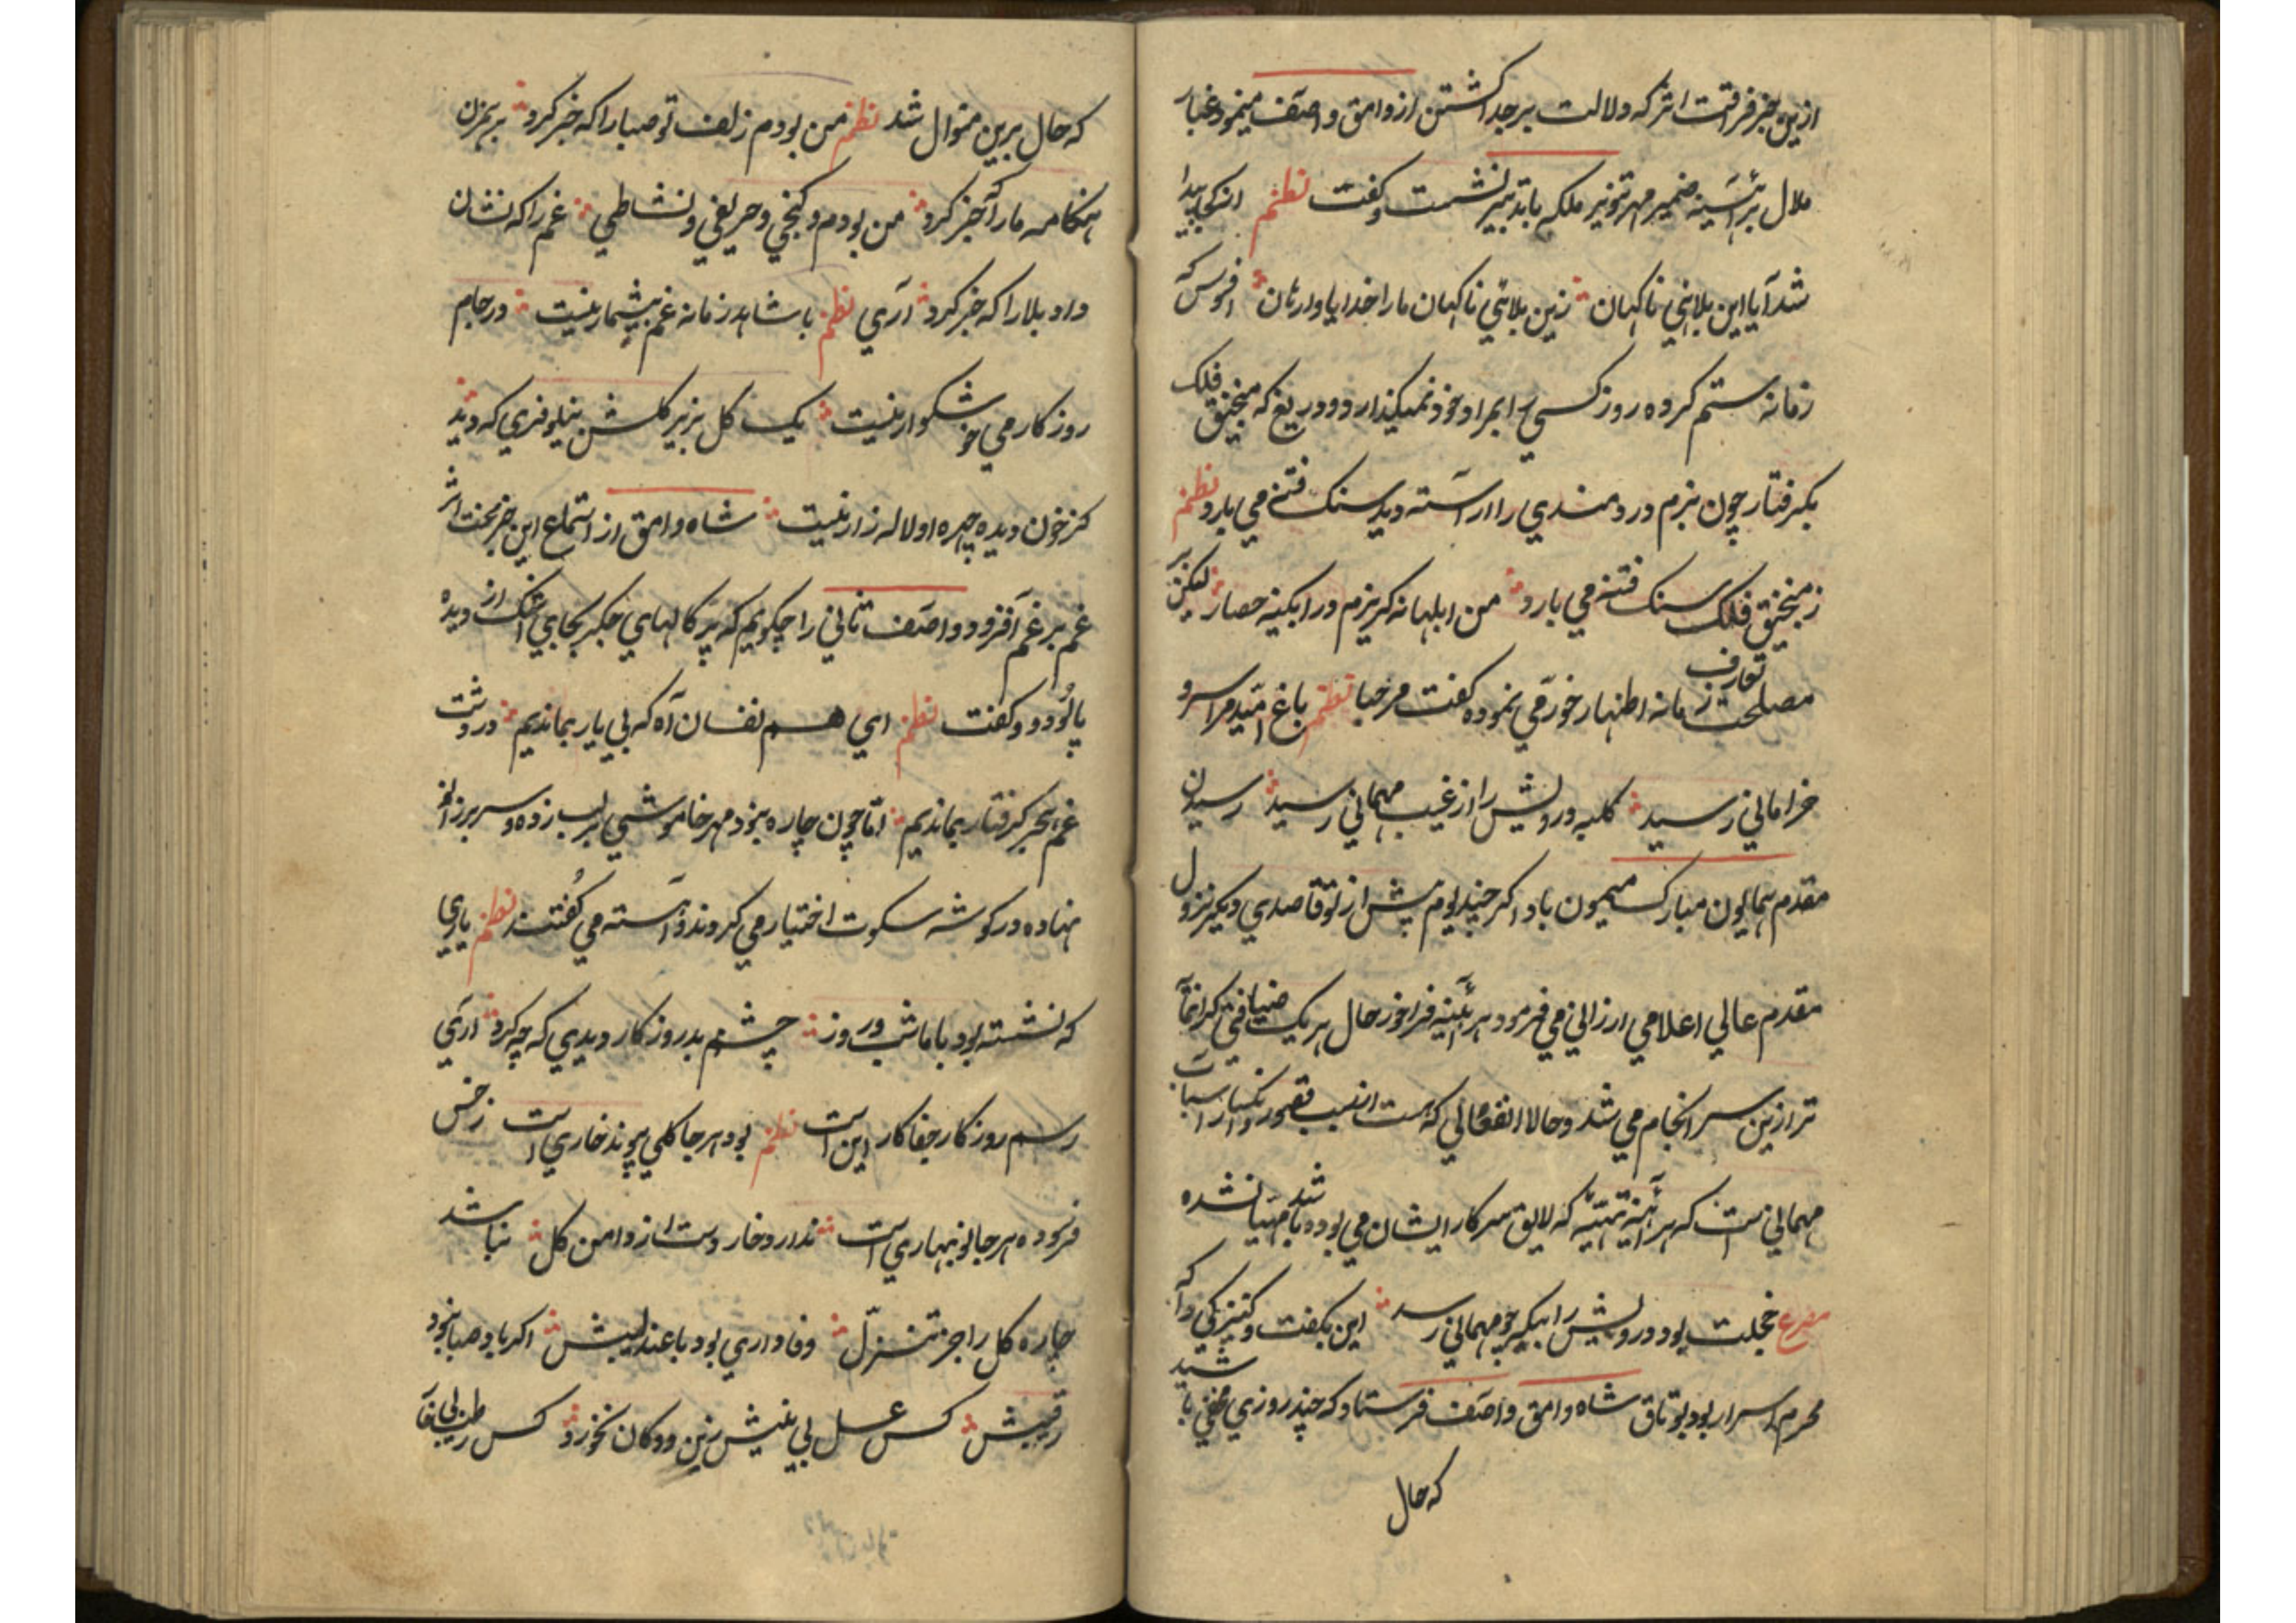 ازین خبر فرقت اثر که دلالت بر جدا کشتن از وامق و اصف مینمود غبار
ملال بر آئینه ضمیر مهر تنویر ملکه با تدبیر نشست و کفت نظم از کجا پیدا
شد آیا این بلائی ناکهان زین بلائی ناکهان ما را خدایا وارهان افسوس که
زمانه ستم کرده روز کسی را بمراد خود نمیکذارد و دریغ که منجنیق فلک
بکرفتار چون بزم دردمندی را آراسته دید سنک فتنه می بارد نظم
ز منجنیق فلک سنک فتنه می بارد من ابلهانه کریزم در آبکینه حصار لیکن بر
مصلحت تعارف زمانه اظهار خورمی نموده کفت مرحبا نظم باغ امید مرا سرو
خرامانی رسید کلبه درویش را از غیب مهمانی رسید رسیدن
مقدم همایون مبارک میمون باد اکر چند یوم پیش از تو قاصدی دیکر نزول
مقدم عالی اعلامی ارزانی می فرمود هر آئینه فراخور حال هر یک ضیافتی کرانمآ
تر ازین سرانجام می شد و حالا انفعالی که هست از سبب قصور تکیتار اسباب
مهمانی است که هر آئینه تهیئه که لایق سرکار ایشان می بوده باشد مهیا نشده
مصرع خجلت بود درویش را بیکه چو مهمانی رسد این بکفت و کنیزکی را که
محرم اسرار بود بوتاق شاه وامق و اصف فرستاد که چند روزی مخفی باشید
که حال
که حال برین منوال شد نظم من بودم زلف تو صبا را که خبر کرد بر همزن
هنکامه ما را که خبر کرد من بودم و کنجی و حریفی و نشاطی غم را که نشان
داد بلا را که خبر کرد آری نظم با شاهد زمانه غم بیشمار نیست در جام
روزکار می خوشکوار نیست یک کل بزیر کلشن نیلوفری که دید
کز خون دیده چهره او لاله زار نیست شاه وامق از استماع این خبر محنت اثر
غم بر غم افزود و اصف ثانی را چکویم که پرکالهای جکر بجای اشک از دیده
پالود و کفت نظم ای هم نفسان آه که بی یار بماندیم در دشت
غم هجر کرفتار بماندیم اما چون چاره نبود مهر خاموشی بر لب زده و سر بر زانو
نهاده در کوشه سکوت اختیار می کردند و آهسته می کفتند نظم یاری
که نشسته بود با ما شب و روز چشم بد روزکار دیدی که چه کرد آری
رسم روزکار جفا کار این است نظم بود هر جا کلی پیوند خاری است ز خس
فرسوده هر جا نوبهاری است ندارد خار دست از دامن کل نباشد
چاره کل را جز تنزل وفاداری بود با عندلیبش اکر باد صبا نبود
رقیبش کس عسل بی نیش زین دوکان نخورد کس رطب بی خا